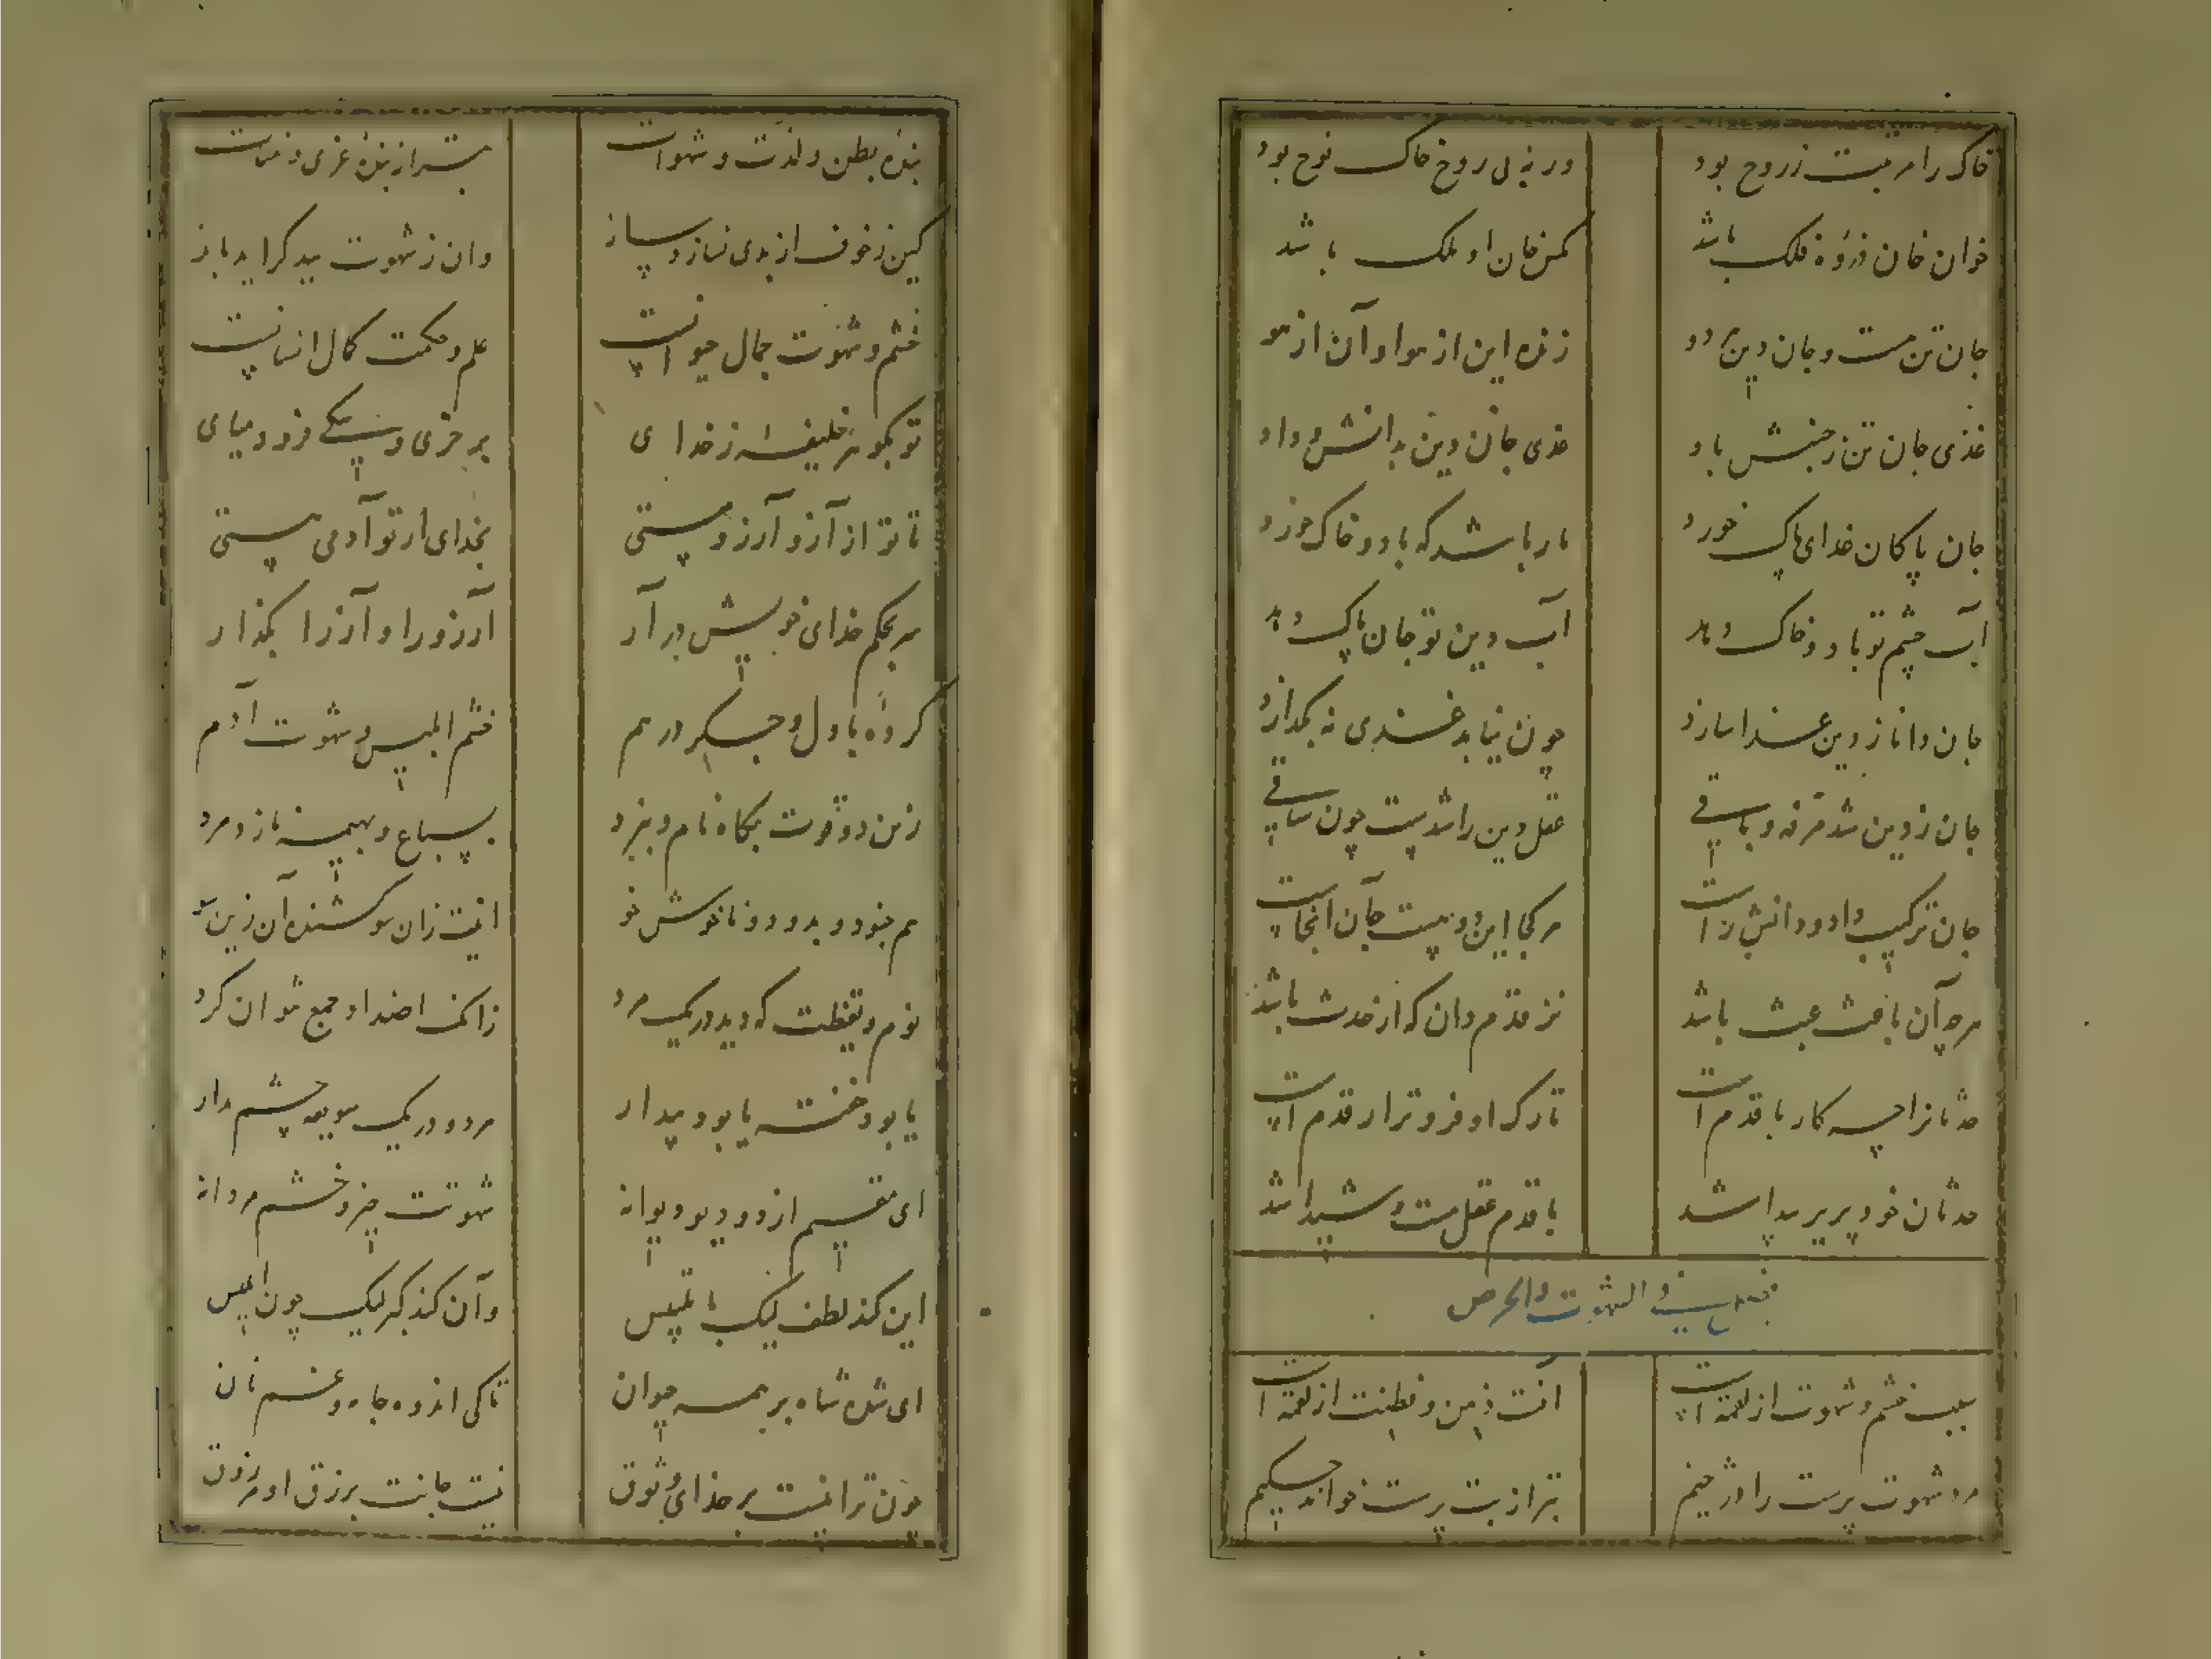 خاک را مرتبت ز روح بود ور نه بی روح خاک نوح بود
خوان خان ذروهٔ فلک باشد کمس خان او ملک باشد
جان تن هست و جان دین هر دو زنده این از هوا و آن از هو
غذی جان تن ز جنبش باد غذی جان دین ز دانش و داد
جان پاکان غذای پاک خورد مار باشد که باد و خاک خورد
آب چشم تو باد و خاک دهد آب دین تو جان پاک دهد
جان دانا ز دین غذا سازد چون نیابد غذی نه بگدازد
جان ز دین شد مرفه و باقی عقل دین را شدست چون ساقی
جان ز ترکیب داد و دانش راست هر کجا این دو نیست جان آنجاست
هر چه آن باعث عبث باشد نز قدم دان که از حدث باشد
حدثانرا چه کار با قدم است تارک او فروتر از قدم است
حدثان خود پریر پیدا شد با قدم عقل مست و شیدا شد
فصل فی الشهوت والحرص
سبب خشم و شهوت از لقمه است آفت ذهن و فطنت از لقمه است
مرد شهوت پرست را در خیم بتر از بت پرست خواند حکیم
بنده بطن و لذت و شهوات بتر از بنده عزی و منات
کین ز خوف از بدی نسازد ساز وان ز شهوت ببد گراید باز
خشم و شهوت جمال حیوانیست علم و حکمت کمال انسانیست
تو بگوهر خلیفهٔ ز خدای بر خری و سگی فرود میای
تا تو از آز و آرزو مستی بخدای ار تو آدمی هستی
سر بحکم خدای خویش در آر آرزو را و آز را بگذار
کرده با دل و جگر در هم خشم ابلیس و شهوت آدم
زین دو قوت بگاه نام و نبرد بسباع و بهیمه نازد مرد
هم خود و بد و دو ناخوش خو اینت زان سو کشنده آن زین سو
نوم و یقظت که دید در یک مرد زانک اضداد جمع نتوان کرد
یا بود خفته یا بود بیدار مرد و در یک سویعه چشم مدار
ای مقیم از دو دیو دیوانه شهوتت حیز و خشم مردانه
این کند لطف لیک با تلبیس وآن کند کبر لیک چون ابلیس
ای شده شاه بر همه حیوان تا کی اندوه جامه و غم نان
چون ترا نیست بر خدای وثوق نیست جانت برزق او مرزوق